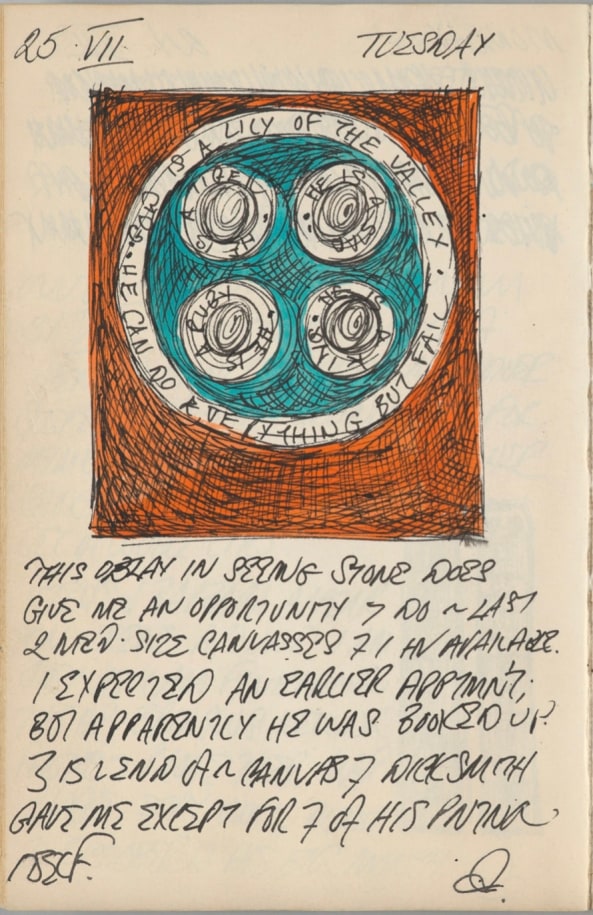 25 · VII
TUESDAY
GOD IS A LILY OF THE VALLEY · HE CAN DO EVERYTHING BUT FAIL
HE IS A TIGER
HE IS A STAR
HE IS A RUBY
HE IS A KING
THIS DELAY IN SEEING STONE DOES
GIVE ME AN OPPORTUNITY > DO ~ LAST
2 MED · SIZE CANVASSES 7 I HV AVAILABLE.
I EXPECTED AN EARLIER APPTMNT;
BUT APPARENTLY HE WAS BOOKED UP.
3 IS ~ END OF ~ CANVAS 7 DICK SMITH
GAVE ME EXCEPT FOR 7 OF HIS PNTNG
ITSELF.